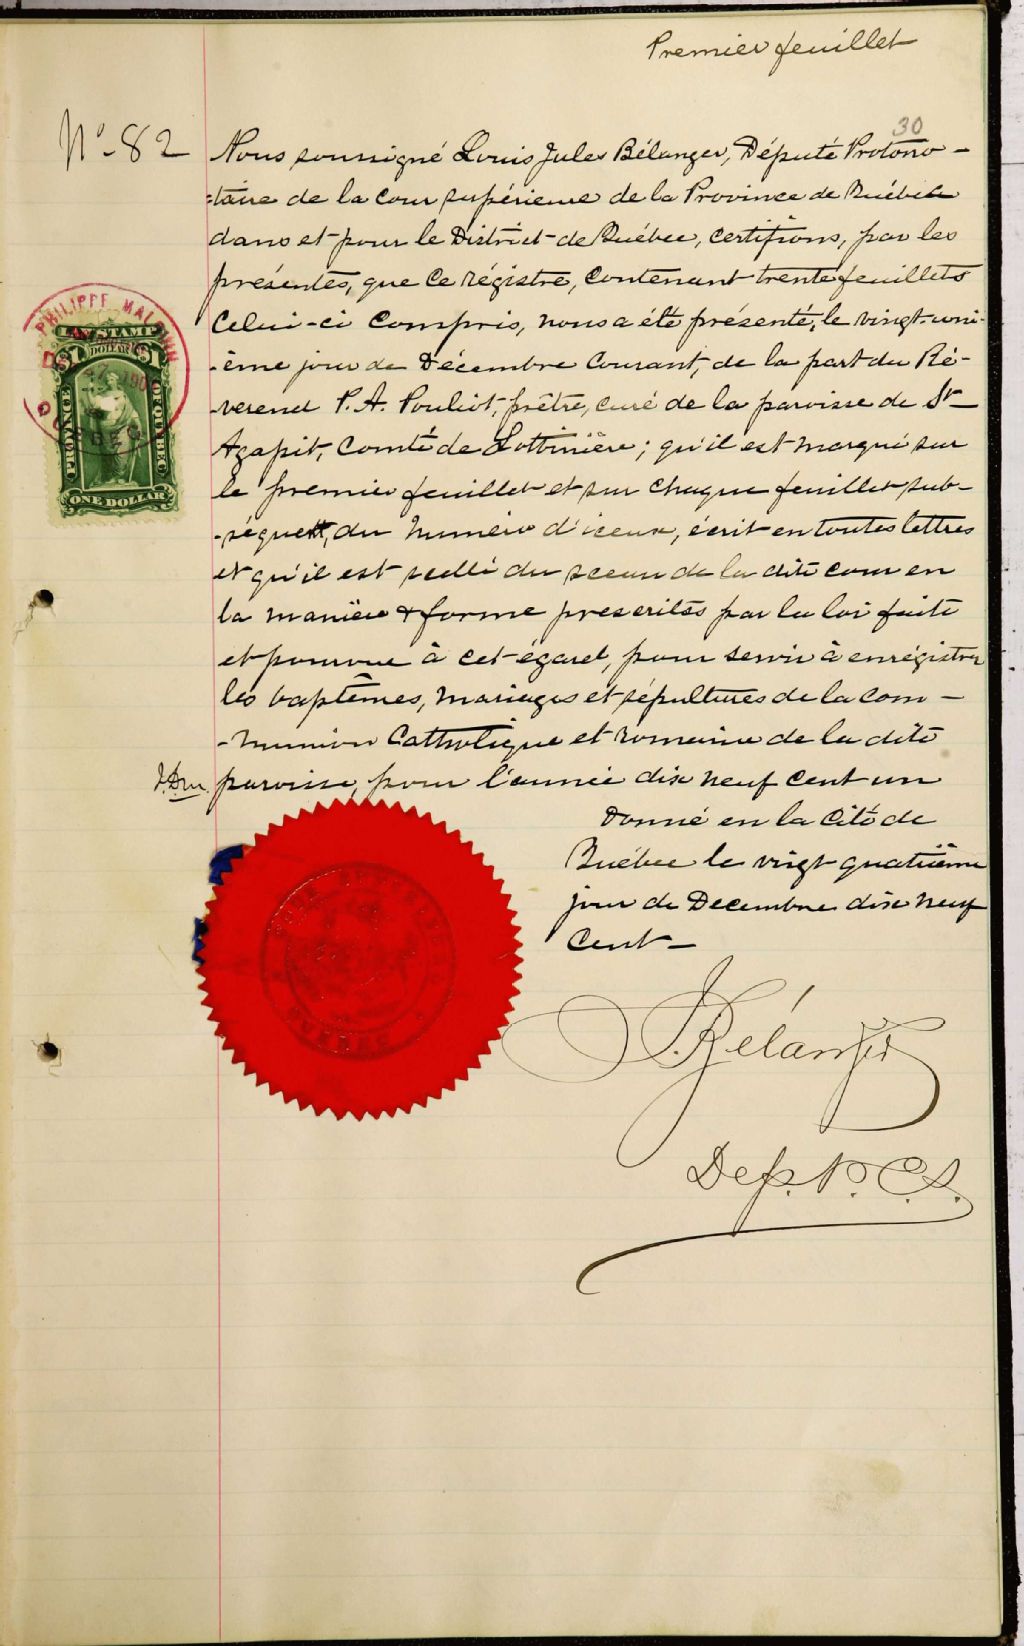 Premier feuillet
30
No 82
Nous soussigné Louis Jules Bélanger, Député Protono-
-taire de la Cour supérieure de la Province de Québec
dans et pour le District de Québec, certifions, par les
présentes, que ce régistre, contenant trente feuillets
celui-ci compris, nous a été présenté, le vingt-uni-
-ème jour de Décembre courant, de la part du Ré-
-verend P. A. Pouliot, prêtre, curé de la paroisse de St
Agapit, Comté de Lotbinière; qu'il est marqué sur
le premier feuillet et sur chaque feuillet sub-
-séquent, du numéro d'iceux, écrit en toutes lettres
et qu'il est scellé du sceau de la dite cour en
la manière & forme prescrites par la loi faite
et pourvue à cet égard, pour servir à enrégistrer
les baptêmes, mariages et sépultures de la Com-
-munion Catholique et romaine de la dite
paroisse, pour l'année dix neuf cent un
Donné en la Cité de
Québec le vingt quatrième
jour de Decembre dix neuf
cent
Bélanger
Dep. P. C. S.
PHILIPPE MALOUIN
LAW STAMP
DOLLAR
PROVINCE
QUEBEC
ONE DOLLAR
QUEBEC